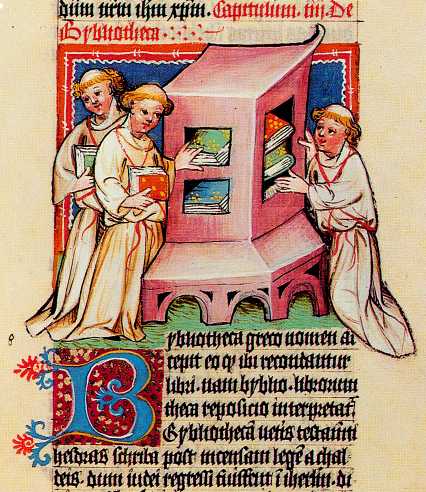 dum nrm ihm xpm. Capitulum iiij. De
Bybliotheca
Bybliotheca greco nomen ac
cepit eo qꝫ ibi recondantur
libri. nam byblio. librorum
theca reposicio interpretat᷑
Bybliothecā uetis testamti
hesdras scriba post incensam legē a chal
deis. dum iudei regressi fuissent ī iherlm. di